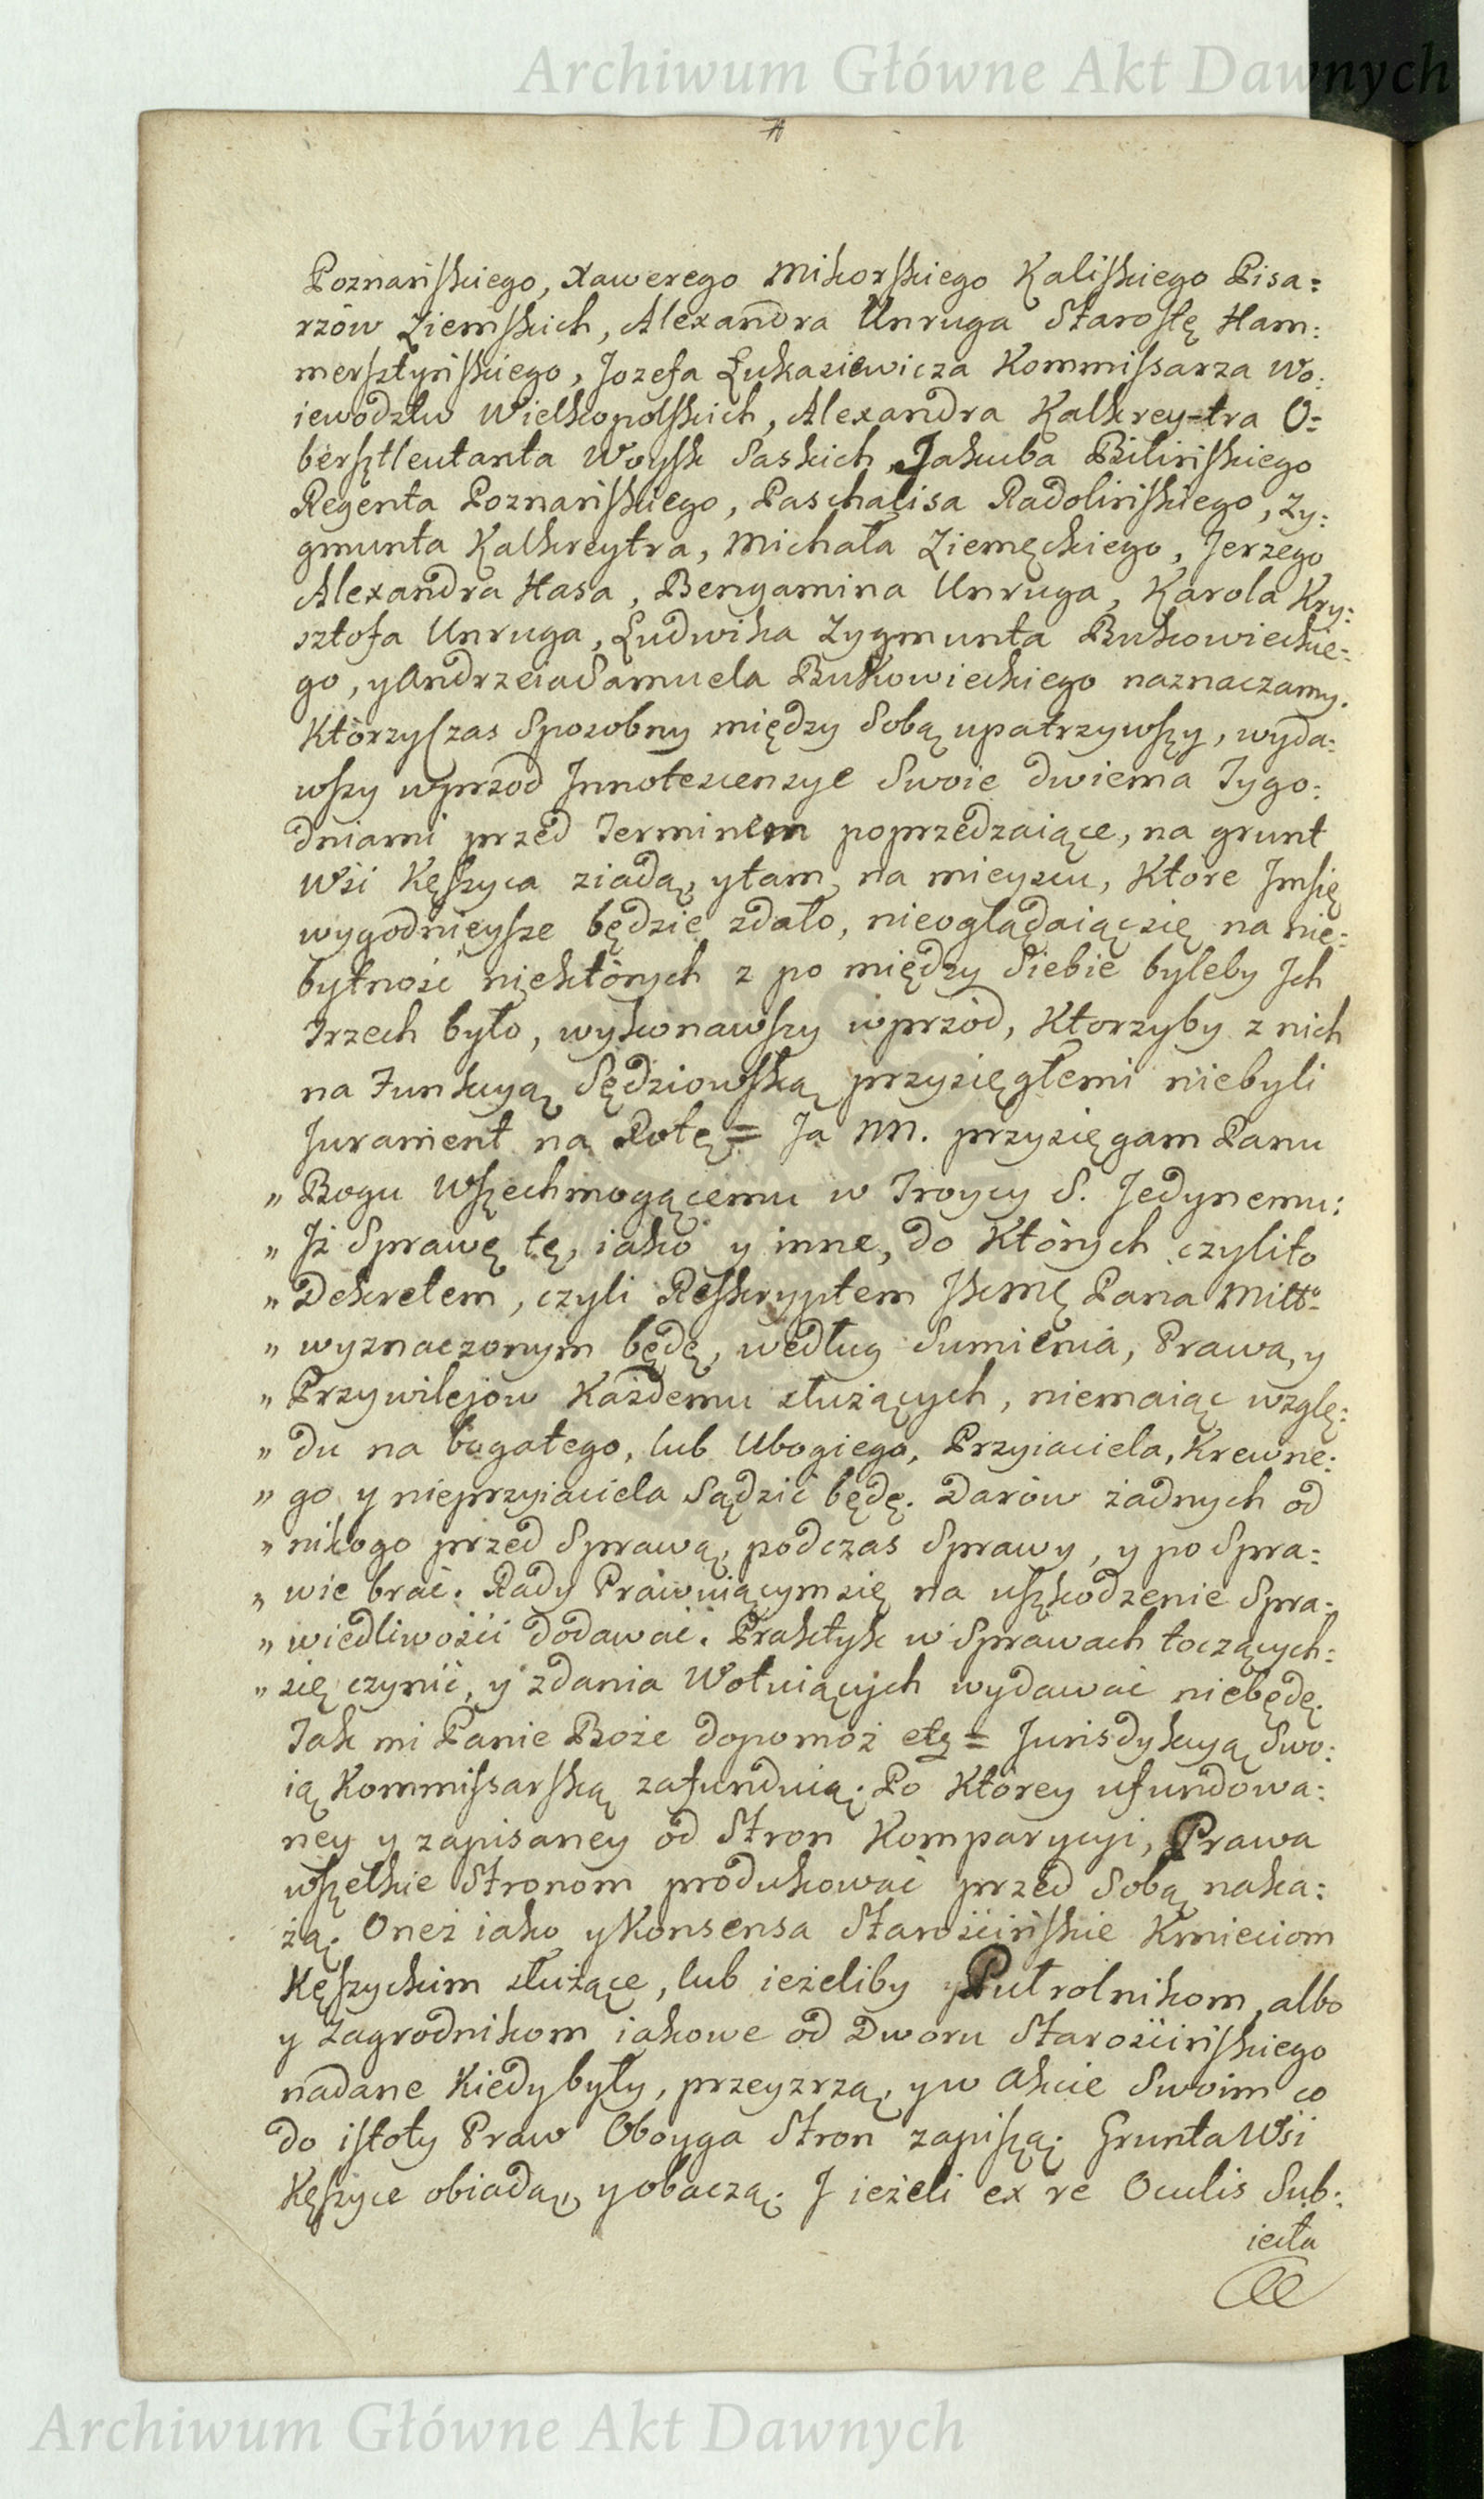 Archiwum Główne Akt Dawnych
Poznańskiego, Xawerego Mikorskiego Kaliskiego Pisa=
rzów Ziemskich, Alexandra Unruga Starostę Ham:
mersztyńskiego, Jozefa Łukasiewicza Kommissarza Wo:
iewodztw Wielkopolskich, Alexandra Kalkrey-tra O=
bersztleutanta Woysk Saskich, Jakuba Bilińskiego
Regenta Poznańskiego, Paschalisa Radolińskiego, Zy:
gmunta Kalkreytra, Michała Ziemęckiego, Jerzego
Alexandra Hasa, Bengamina Unruga, Karola Kry:
sztofa Unruga, Ludwika Zygmunta Bukowieckie=
go, y Andrzeia Samuela Bukowieckiego naznaczamy.
Którzy Czas Sposobny między Sobą upatrzywszy, wyda=
wszy wprzod Innotescencye Swoie dwiema Tygo:
dniami przed Terminem poprzedzaiące, na grunt
Wsi Kęszyca ziadą, y tam na mieyscu, Które Im się
wygodnieysze będzie zdało, nieoglądaiąc się na nie=
bytność niektórych z po między Siebie byleby Ich
Trzech było, wykonawszy wprzód, Ktorzyby z nich
na Funkcyą Sędziowską przysięgłemi niebyli
Jurament na Rotę = Ja NN. przysięgam Panu
„ Bogu Wszechmogącemu w Troycy S. Jedynemu:
„ Iż Sprawę tę, iako y inne, do Których czylito
„ Dekretem, czyli Reskryptem JKMę Pana Mittº
„ wyznaczonym będę, według Sumienia, Prawa, y
„ Przywilejow Każdemu służących, niemaiąc wzglę:
„ du na bogatego, lub Ubogiego, Przyiaciela, Krewne:
„ go y nieprzyiaciela Sądzić będę. Darów żadnych od
„ nikogo przed Sprawą, podczas Sprawy, y po Spra=
„ wie brać. Rady Prawuiącym się na uszkodzenie Spra=
„ wiedliwości dodawać. Praktyk w Sprawach toczących=
„ się czynić, y zdania Wotuiących wydawać niebędę.
Tak mi Panie Boże dopomoż etc = Jurisdykcyą Swo:
ią Kommissarską zafunduią. Po Którey ufundowa:
ney y zapisaney od Stron Komparycyi, Prawa
wszelkie Stronom produkować przed Sobą naka:
żą. Oneż iako y Konsensa Starościńskie Kmieciom
Kęszyckim służące, lub ieżeliby y Pułrolnikom, albo
y Zagrodnikom iakowe od Dworu Starościńskiego
nadane Kiedy były, przeyzrzą, y w Akcie Swoim co
do istoty Praw Oboyga Stron zapiszą. Grunta Wsi
Kęszyce obiadą, y obaczą. I ieżeli ex re Oculis Sub:
iecta
Archiwum Główne Akt Dawnych